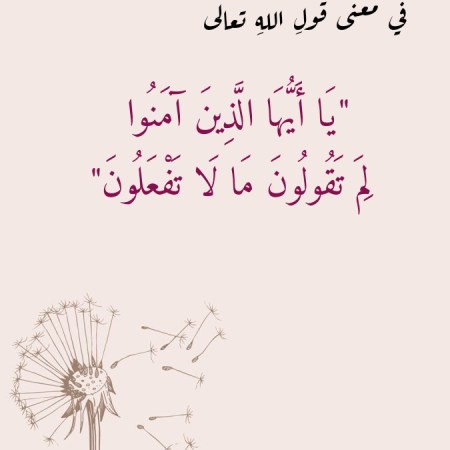 في معنى قولِ اللهِ تعالى
"يَا أَيُّهَا الَّذِينَ آمَنُوا
لِمَ تَقُولُونَ مَا لَا تَفْعَلُونَ"